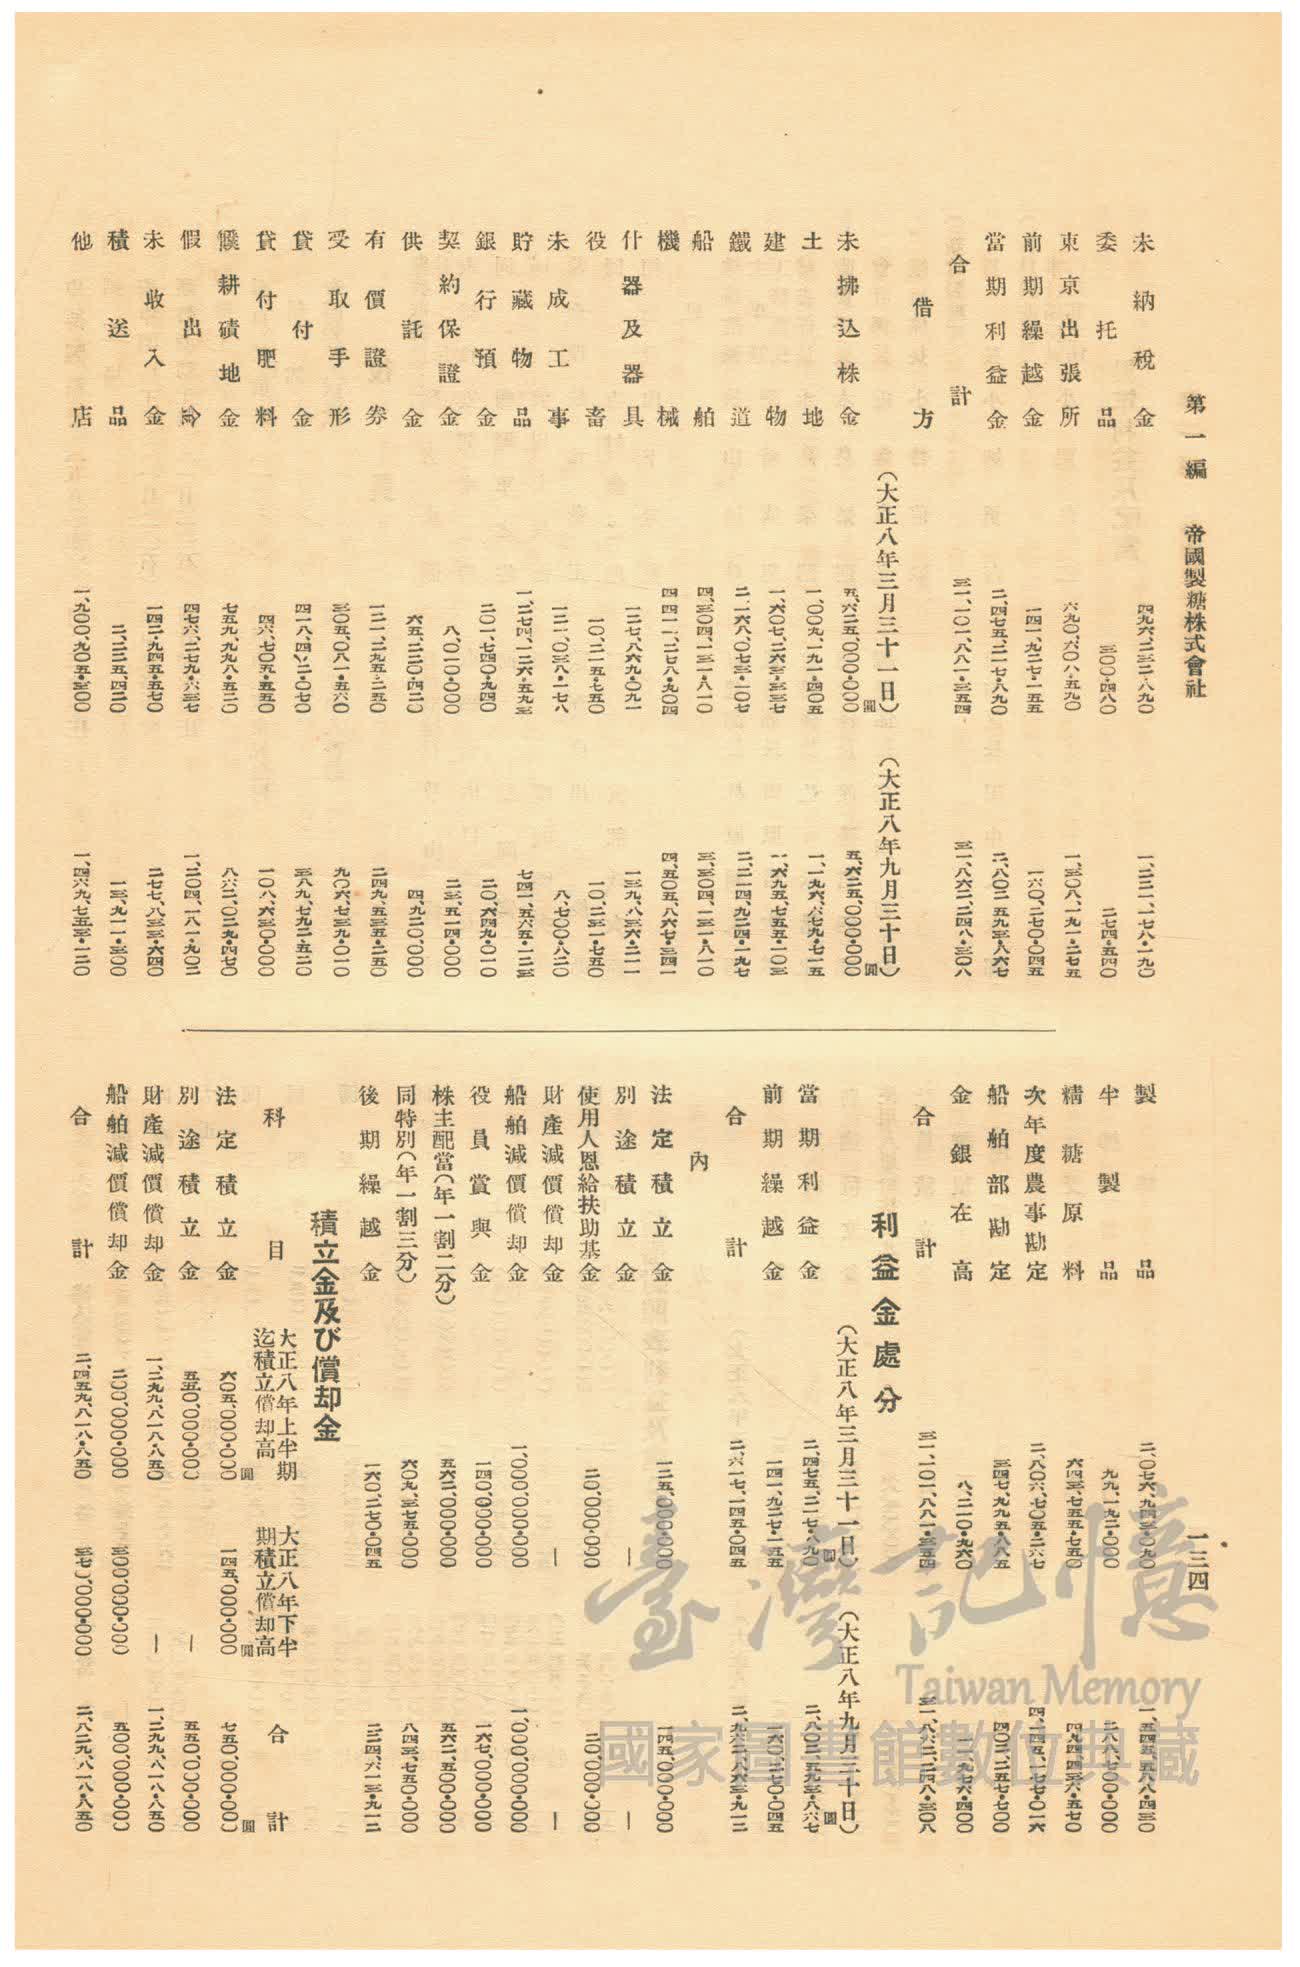 第一編　帝國製糖株式會社
一三四
未納稅金　四九六、二三二・八九〇　一、二三一、一七八・一九〇
委托品　三〇〇・四八〇　二七四・五四〇
東京出張所　六九〇、六〇八・五九〇　一、三〇八、一九一・二七五
前期繰越金　一四一、九二七・一五五　一六〇、二七〇・〇四五
當期利益金　二、四七五、二一七・八九〇　二、八〇二、五九三・八六七
合計　三一、一〇一、八八一・三五四　三一、八六二、二四八・三〇八
借方
（大正八年三月三十一日）　（大正八年九月三十日）
未拂込株金　五、六二五、〇〇〇・〇〇〇圓　五、六二五、〇〇〇・〇〇〇圓
土地　一、〇〇九、一九一・四〇五　一、一九六、六七九・七一五
建物　一、六〇七、二六三・三三七　一、六九五、七五五・一〇三
鐵道　二、一六八、〇七三・一〇七　二、二一四、九二四・一九七
船舶　四、三〇四、一三一・八一〇　三、三〇四、一三一・八一〇
機械　四、四一一、二七八・九〇四　四、五〇五、八六七・三四一
什器及器具　一二七、八六九・〇九一　一三九、八三六・二一一
役畜　一〇、二一五・七五〇　一〇、二三一・七五〇
未成工事　一二一、〇三八・一七八　八、七〇〇・八二〇
貯藏物品　一、二七四、一二六・五九三　七四一、五六五・一二三
銀行預金　二〇一、七四〇・九四〇　二〇、六四九・〇一〇
契約保證金　八、〇一〇・〇〇〇　二三、五一四・〇〇〇
供託金　六五、二二〇・四二〇　四、九二〇・〇〇〇
有價證券　一二一、二九五・二五〇　二四九、五三五・二五〇
受取手形　三〇五、〇八一・五六〇　九〇六、七三九・〇一〇
貸付金　四一八、四八二・〇七〇　三八九、七九二・五二〇
貸付肥料　四六、七〇五・五五〇　一〇八、六三〇・〇〇〇
贌耕磧地金　七五九、九九八・五二〇　八六二、〇二九・四七〇
假出金　四七六、二七九・六三七　一、二〇四、一八一・九〇二
未收入金　一四二、九四五・五七〇　二七七、八三三・六四〇
積送品　二、二三五・四二〇　一三、九一一・三〇〇
他店　一、九〇〇、九〇五・三〇〇　一、四六九、七五三・一二〇
製品　二、〇七六、九四三・〇九〇　一、五四五、五八八・四三〇
半製品　九九、一九二・〇〇〇　二八八、七〇〇・〇〇〇
精糖原料　六四三、七五五・七五〇　四九四、四三六・五七〇
次年度農事勘定　二、八〇六、七〇五・二六七　四、一四五、一七七・〇二六
船舶部勘定　三四七、九九五・八八五　四〇三、二五七・七〇〇
金銀在高　八、二二〇・九六〇　一一、九七六・四〇〇
合計　三一、一〇一、八八一・三五四　三一、八六二、二四八・三〇八
利益金處分
（大正八年三月三十一日）　（大正八年九月三十日）
當期利益金　二、四七五、二一七・八九〇圓　二、八〇二、五九三・八六七圓
前期繰越金　一四一、九二七・一五五　一六〇、二七〇・〇四五
合計　二、六一七、一四五・〇四五　二、九六二、八六三・九一二
內
法定積立金　一二五、〇〇〇・〇〇〇　一四五、〇〇〇・〇〇〇
別途積立金　―　―
使用人恩給扶助基金　二〇、〇〇〇・〇〇〇　二〇、〇〇〇・〇〇〇
財產減價償却金　―　―
船舶減價償却金　一、〇〇〇、〇〇〇・〇〇〇　一、〇〇〇、〇〇〇・〇〇〇
役員賞與金　一四〇、〇〇〇・〇〇〇　一六七、〇〇〇・〇〇〇
株主配當（年一割二分）　五六二、五〇〇・〇〇〇　五六二、五〇〇・〇〇〇
同特別（年一割三分）　六〇九、三七五・〇〇〇　八四三、七五〇・〇〇〇
後期繰越金　一六〇、二七〇・〇四五　二二四、六一三・九一二
積立金及び償却金
科目　大正八年上半期迄積立償却高　大正八年下半期積立償却高　合計
法定積立金　六〇五、〇〇〇・〇〇〇圓　一四五、〇〇〇・〇〇〇圓　七五〇、〇〇〇・〇〇〇圓
別途積立金　五五〇、〇〇〇・〇〇〇　―　五五〇、〇〇〇・〇〇〇
財產減價償却金　一、二九九、八一八・八五〇　―　一、二九九、八一八・八五〇
船舶減價償却金　二〇〇、〇〇〇・〇〇〇　三〇〇、〇〇〇・〇〇〇　五〇〇、〇〇〇・〇〇〇
合計　二、四五九、八一八・八五〇　三七〇、〇〇〇・〇〇〇　二、八二九、八一八・八五〇
臺灣記憶
Taiwan Memory
國家圖書館數位典藏